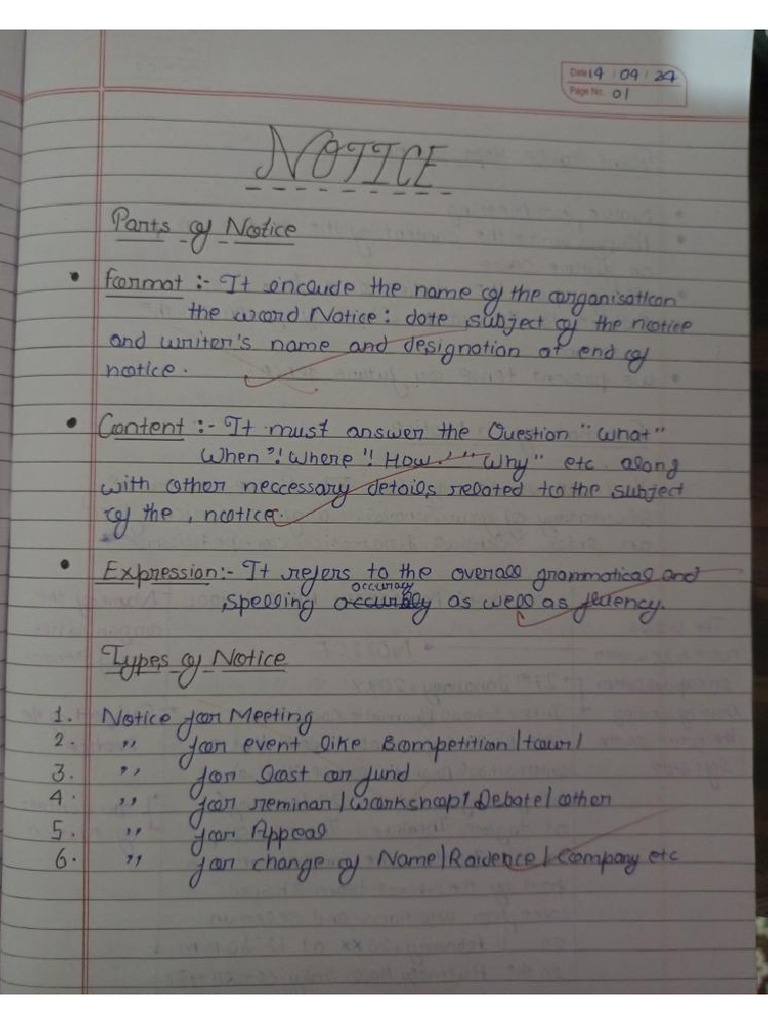 Date 14 / 04 / 24
Page No. 01
NOTICE
Parts of Notice
• Format :- It include the name of the organisation
the word Notice: date, subject of the notice
and writer's name and designation at end of
notice.
• Content :- It must answer the Question "What"
When"! Where"! How! "Why" etc along
with other neccessary details related to the subject
of the, notice.
• Expression:- It refers to the overall grammatical and
accuracy
spelling as well as fluency.
Types of Notice
1. Notice for Meeting
2. " for event like Competition/tour/
3. " for Lost or fund
4. " for seminar/Workshop/Debate/other
5. " for Appeal
6. " for change of Name/Raidence/Company etc